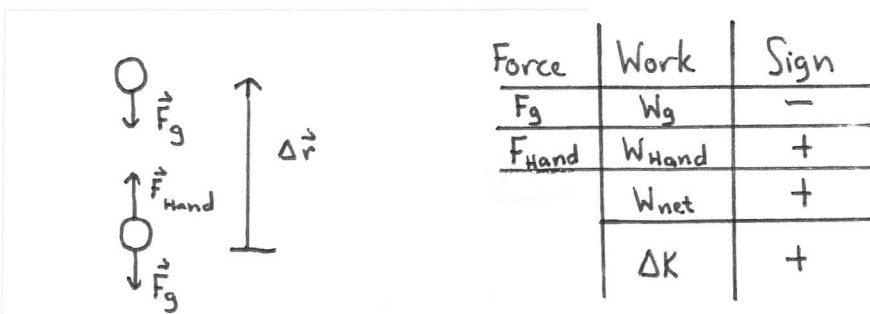 F⃗g
F⃗Hand
F⃗g
Δr⃗
Force Work Sign
Fg Wg −
FHand WHand +
Wnet +
ΔK +